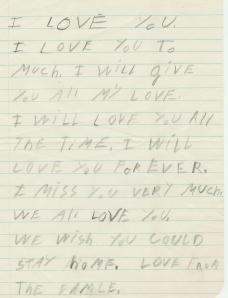 I LOVE YOU.
I LOVE YOU TO
MUCH. I WILL GIVE
YOU All MY LOVE.
I WILL LOVE YOU All
THE TIME. I WILL
LOVE YOU FOREVER.
I MISS YOU VERY MUCH.
WE All LOVE YOU.
WE WISH YOU COULD
STAY hOME. LOVE FROM
THE FAMLE.